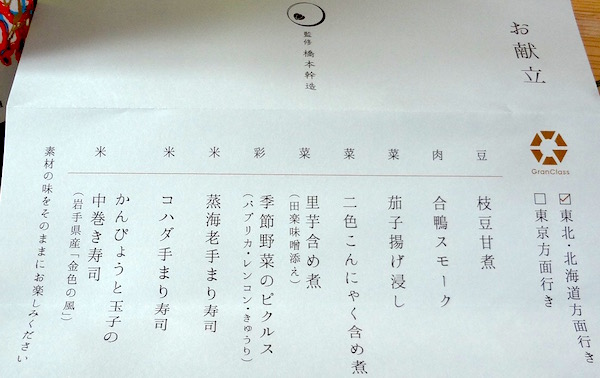 お献立
監修 橋本幹造
GranClass
☑東北・北海道方面行き
□東京方面行き
豆
枝豆甘煮
肉
合鴨スモーク
菜
茄子揚げ浸し
菜
二色こんにゃく含め煮
菜
里芋含め煮
(田楽味噌添え)
彩
季節野菜のピクルス
(パプリカ・レンコン・きゅうり)
米
蒸海老手まり寿司
米
コハダ手まり寿司
米
かんぴょうと玉子の
中巻き寿司
(岩手県産「金色の風」)
素材の味をそのままにお楽しみください